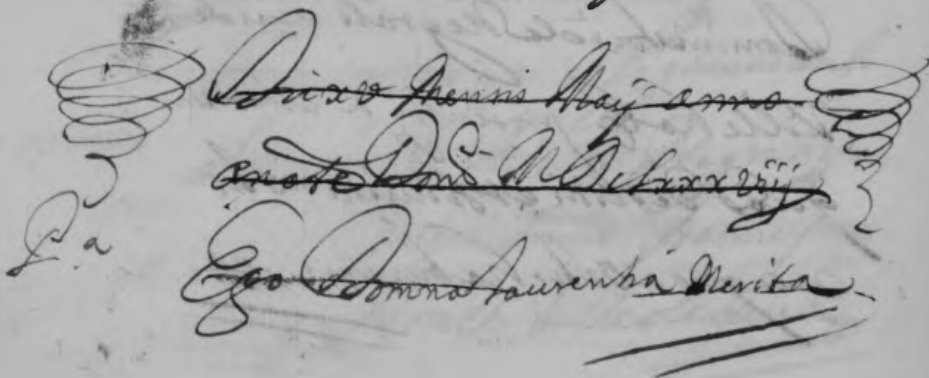 Die xv Mensis Maij anno
a nate Dom̄ MDclxxxviij
P. a
Ego Domna Laurentia Merita